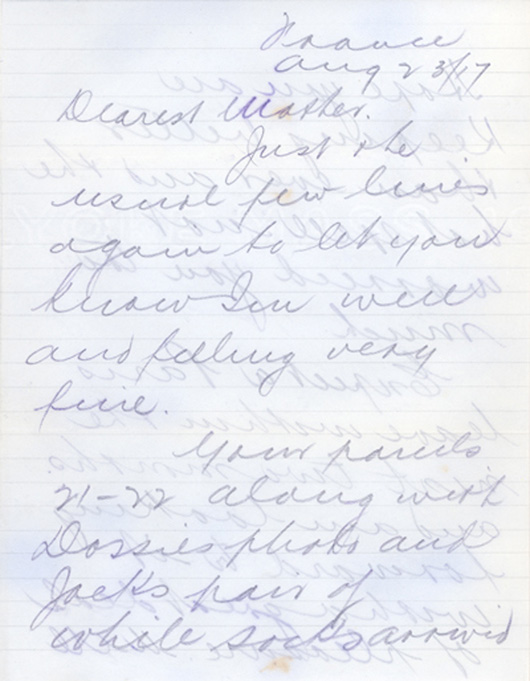 France
Aug 23/17
Dearest Mother.
Just the
usual few lines
again to let you
know Im well
and feeling very
fine.
Your parcels
21-22 along with
Dossies photo and
Jacks pair of
while socks arrived